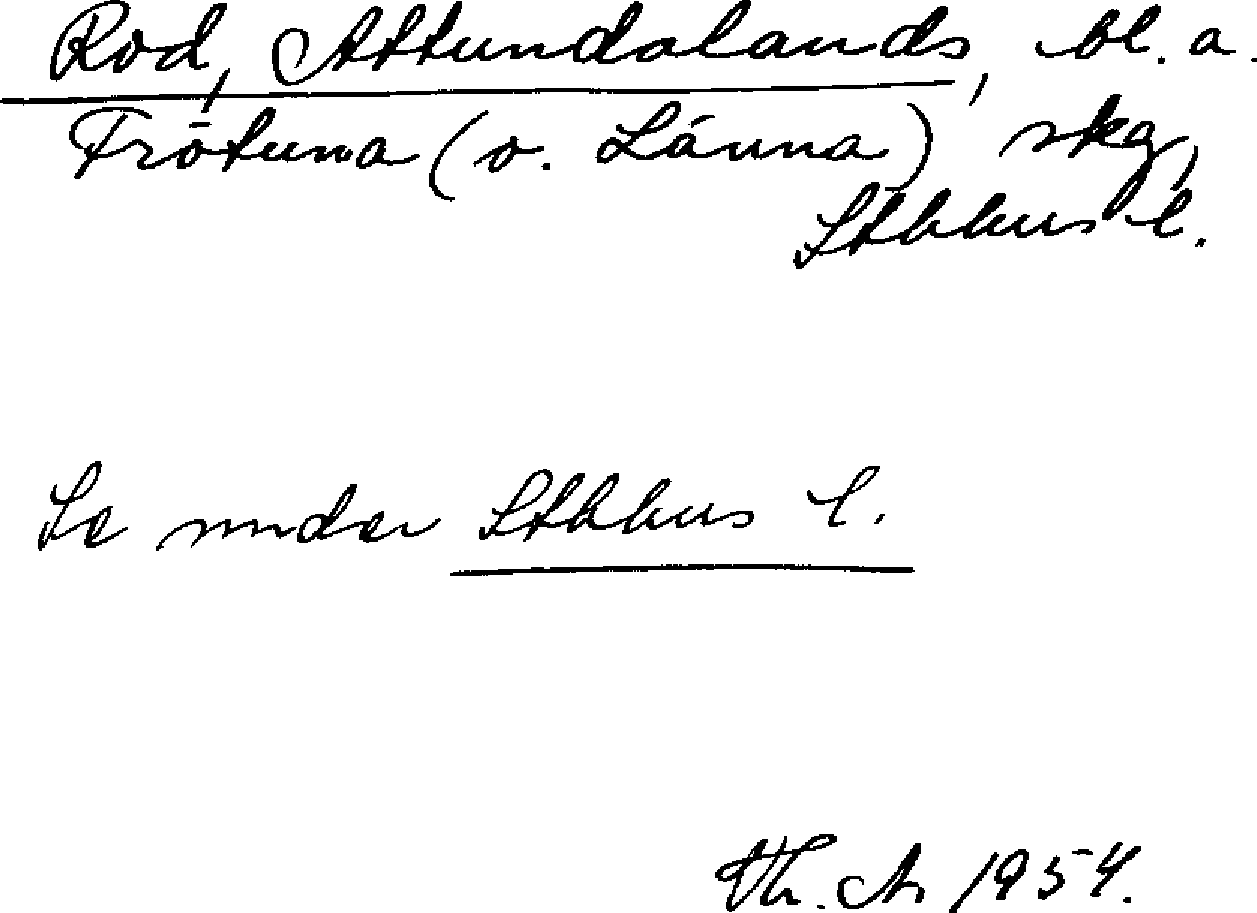 Rod, Attundalands, bl. a.
Frötuna (o. Länna) skg,
Sthlms l.
Se under Sthlms l.
Th. A. 1954.